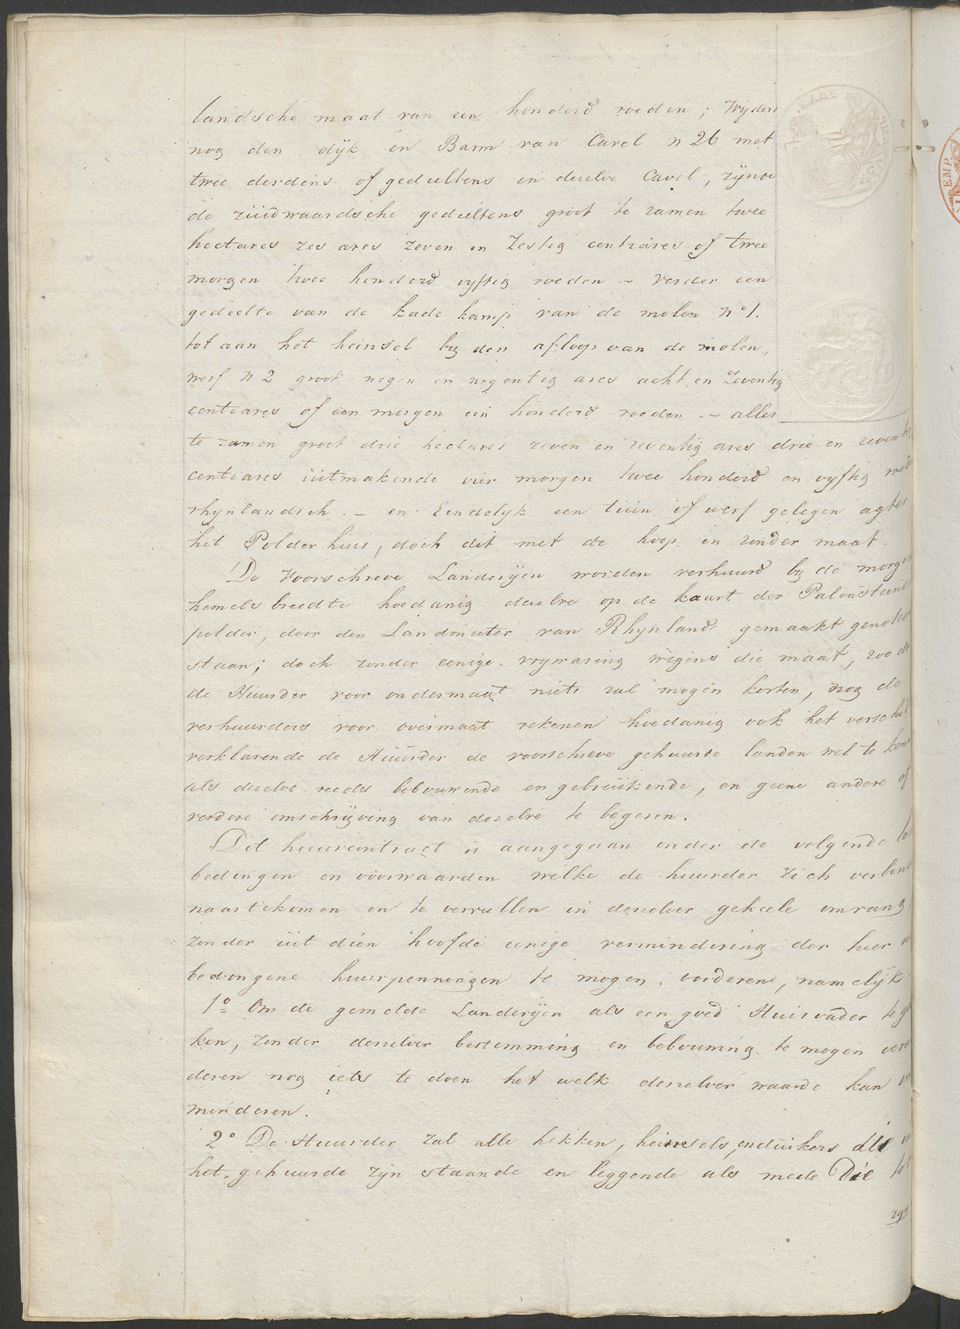 landsche maat van een honderd roeden; wyders
nog den dijk en Barm van Cavel N 26 met
twee derdens of gedeeltens in deselve Cavel, zynde
de zuidwaardsche gedeeltens groot te zamen twee
hectares zes ares zeven en zestig centiares of twee
morgen twee honderd vyftig roeden ~ verder een
gedeelte van de kade kamp van de molen No 1.
tot aan het heinsel by den afloop van de molen,,
werf N 2 groot negen en negentig ares acht en zeventig
centiares of een morgen een honderd roeden. ~ alles
te zamen groot drie hectares zeven en zeventig ares drie en
centiares uitmakende vier morgen twee honderd en vyftig
rhynlandsch. – en Eindelyk een tuin of werf gelegen agter
het Polder huis, doch dit met de hoop en zonder maat.
De Voorschreve Landeryen worden verhuurd by de
hemels breedte hoedanig deselve op de kaart der Palensteinsc
polder, door den Landmeeter van Rhynland gemaakt
staan; doch zonder eenige vrywaring wegens die maat, zoo
de Huurder voor ondermaat niets zal mogen korten, nog de
verhuurders voor overmaat rekenen hoedanig ook het
verklarende de Huurder de voorschreve gehuurde landen wel te
als deselve reeds bebouwende en gebruikende, en geene andere of
verdere omschryving van deselve te begeren.
Dit huurcontract is aangegaan onder de volgende
bedingen en voorwaarden welke de huurder zich
naartekomen en te vervullen in deszelver geheele omvang
zonder uit dien hoofde eenige vermindering der hier
bedongene huurpenningen te mogen vorderen, namelyk
1o Om de gemelde Landeryen als een goed Huisvader te
ken, zonder deszelver bestemming en bebouwing te mogen
deren nog iets te doen het welk deszelver waarde kan
minderen.
2o De Huurder zal alle hekken, heinsels, en duikers die
het gehuurde zyn staande en leggende als mede Die